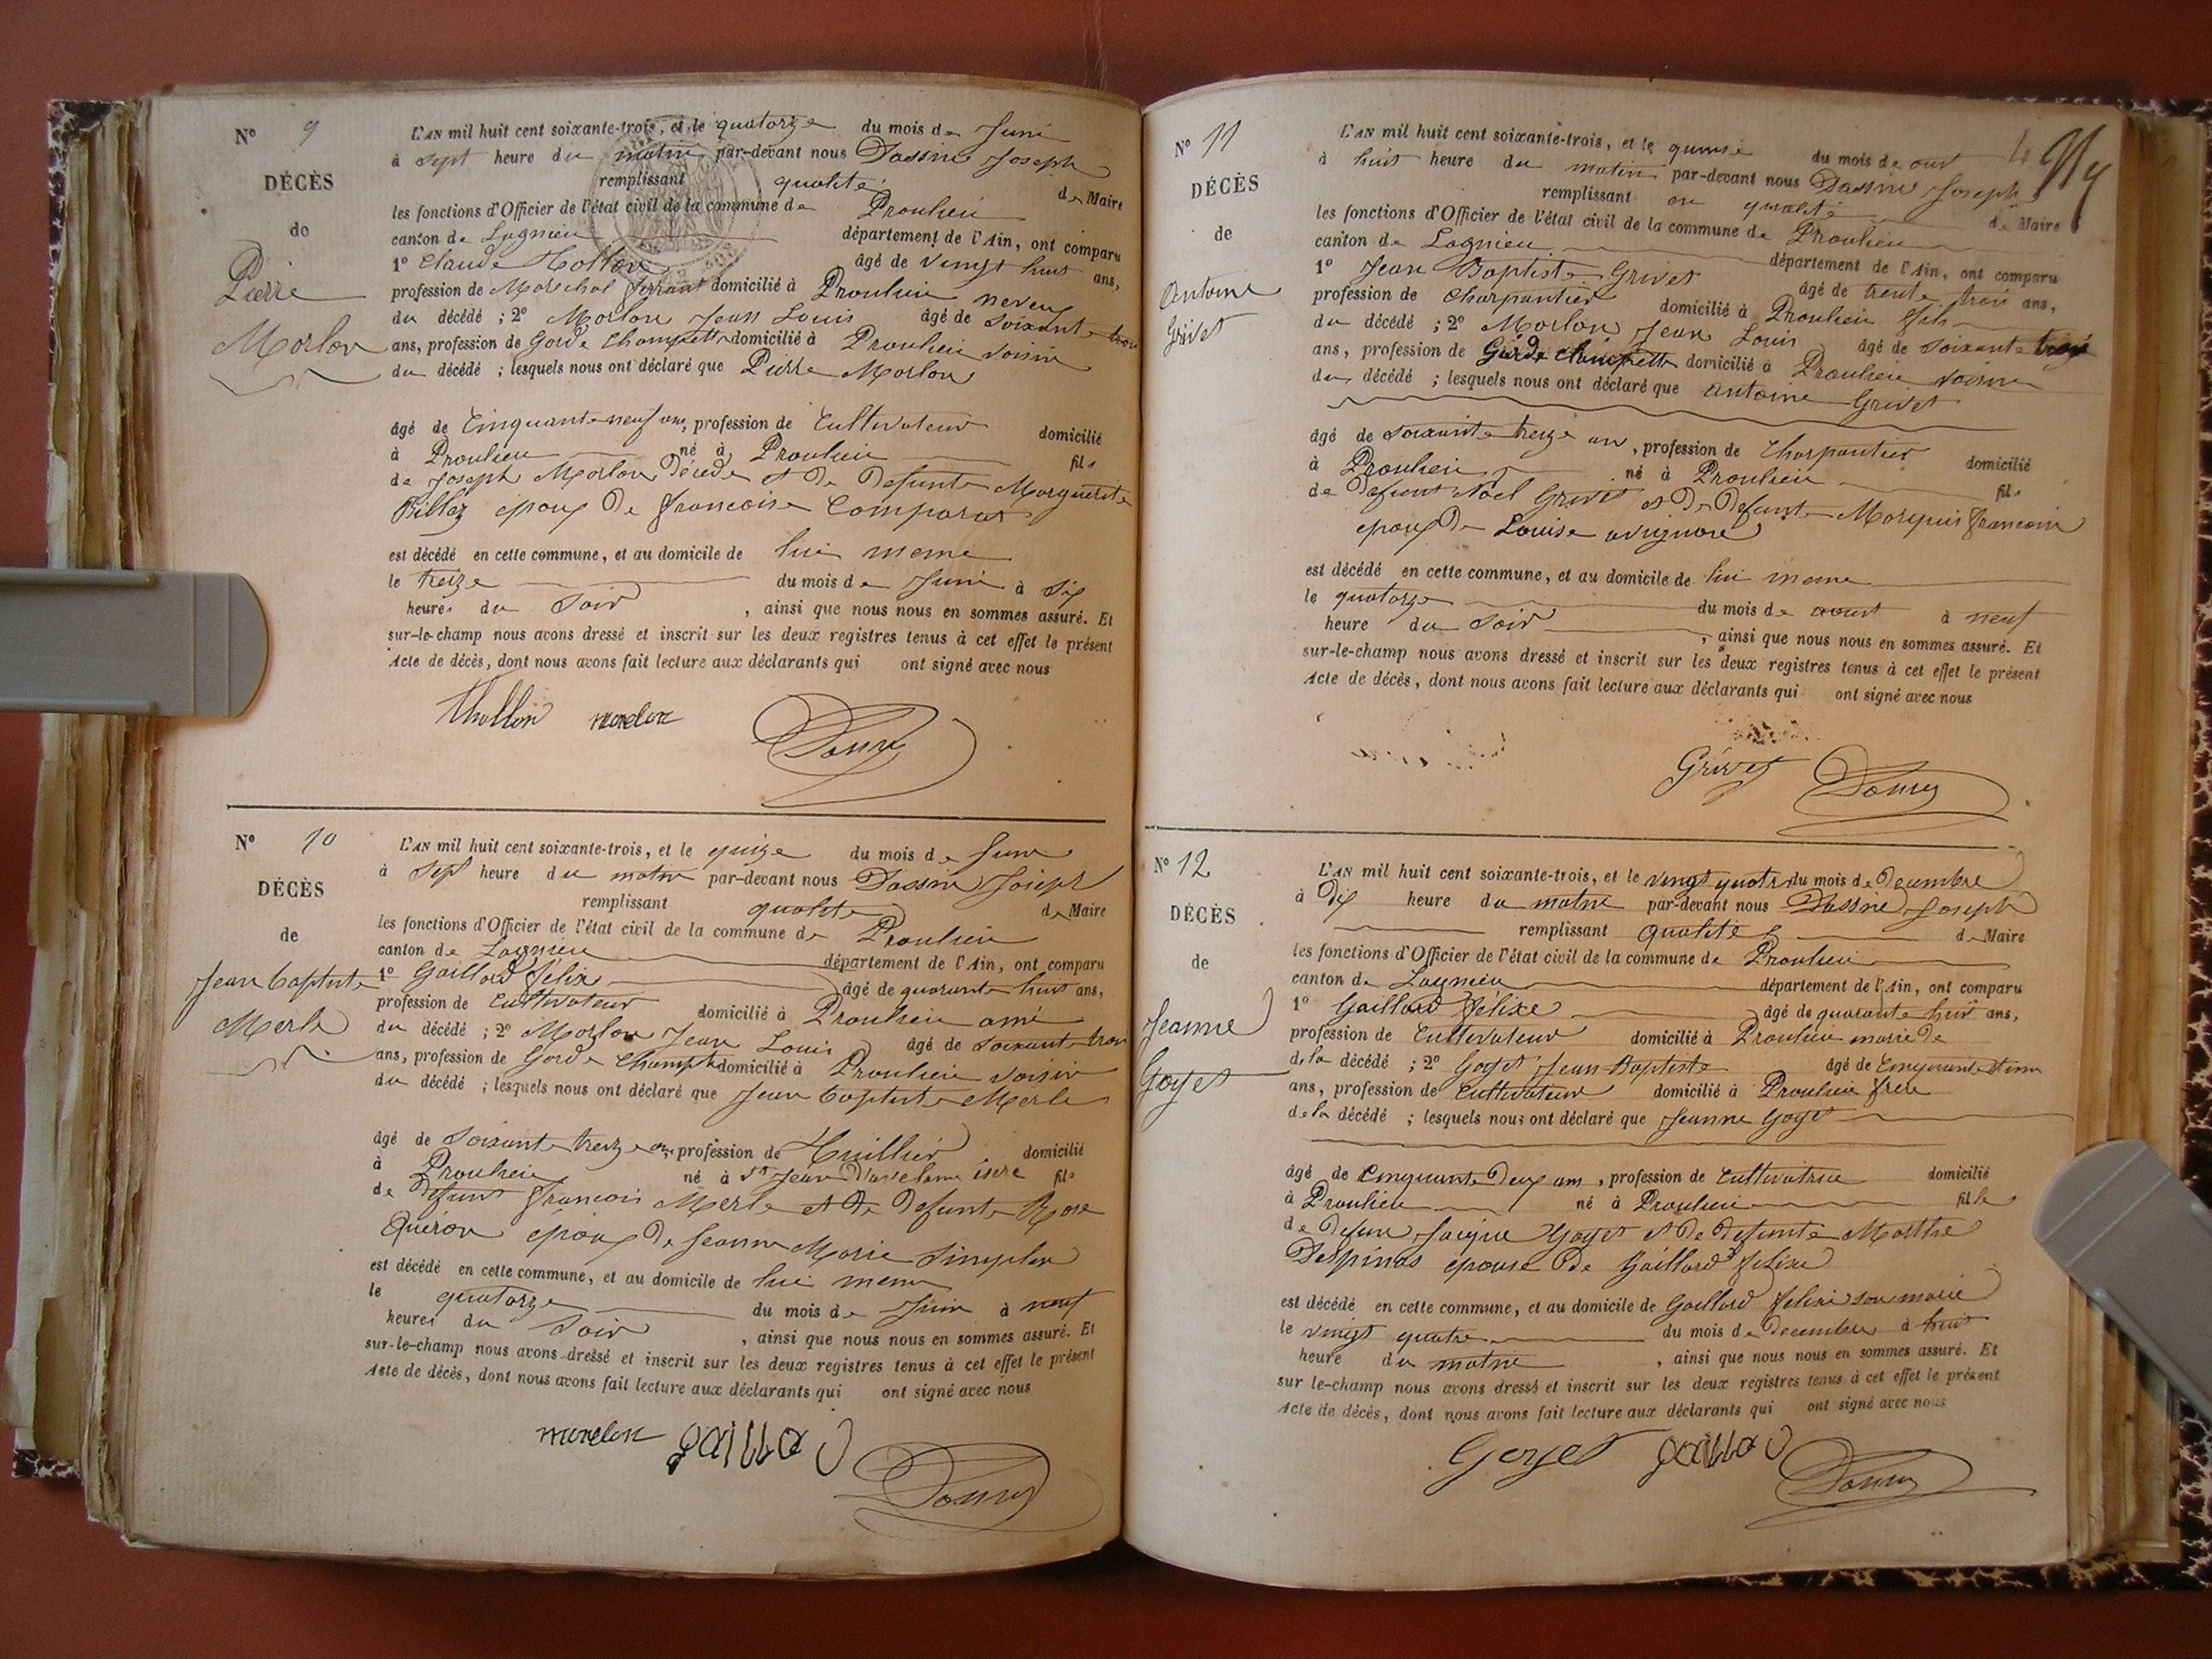 N° 9
DÉCÈS
de
Pierre
Morlon
L'AN mil huit cent soixante-trois, et le quatorze du mois de Juin
à sept heure du matin par-devant nous Dassin Joseph
remplissant qualité de Maire
les fonctions d'Officier de l'état civil de la commune de Proulieu
canton de Lagnieu département de l'Ain, ont comparu
1° Claude âgé de vingt huit ans,
profession de Marechal ferrant domicilié à Proulieu neveu
du décédé ; 2° Morlon Jean Louis âgé de soixante trois
ans, profession de Garde Champette domicilié à Proulieu voisin
du décédé ; lesquels nous ont déclaré que Pierre Morlon
âgé de Cinquante neuf ans, profession de Cultivateur domicilié
à Proulieu né à Proulieu fils
de Joseph Morlon décédé et de defunte Marguerite
Billaz epoux de francoise Comparat
est décédé en cette commune, et au domicile de lui meme
le treize du mois de Juin à six
heures du soir, ainsi que nous nous en sommes assuré. Et
sur-le-champ nous avons dressé et inscrit sur les deux registres tenus à cet effet le présent
Acte de décès, dont nous avons fait lecture aux déclarants qui ont signé avec nous
thollon morlon
N° 10
DÉCÈS
de
Jean baptiste
Merle
L'AN mil huit cent soixante-trois, et le quize du mois de Juin
à sept heure du matin par-devant nous Dassin Joseph
remplissant qualité de Maire
les fonctions d'Officier de l'état civil de la commune de Proulieu
canton de Lagnieu département de l'Ain, ont comparu
1° Gaillard felix âgé de quarante huit ans,
profession de Cultivateur domicilié à Proulieu ami
du décédé ; 2° Morlon Jean Louis âgé de soixante trois
ans, profession de Garde Champette domicilié à Proulieu voisin
du décédé ; lesquels nous ont déclaré que Jean baptiste Merle
âgé de soixante treize ans, profession de Huillier domicilié
à Proulieu né à St Jean isere fils
de defunt francois Merle et de defunte Rose
Quiron époux de Jeanne Marie
est décédé en cette commune, et au domicile de lui meme
le quatorze du mois de Juin à neuf
heures du soir, ainsi que nous nous en sommes assuré. Et
sur-le-champ nous avons dressé et inscrit sur les deux registres tenus à cet effet le présent
Acte de décès, dont nous avons fait lecture aux déclarants qui ont signé avec nous
morlon gaillad
N° 11
DÉCÈS
de
Antoine
Grivet
L'AN mil huit cent soixante-trois, et le quinse du mois de out
à huit heure du matin par-devant nous Dassin Joseph
remplissant en qualité de Maire
les fonctions d'Officier de l'état civil de la commune de Proulieu
canton de Lagnieu département de l'Ain, ont comparu
1° Jean Baptiste Grivet âgé de trente trois ans,
profession de Charpantier domicilié à Proulieu fils
du décédé ; 2° Morlon Jean Louis âgé de soixante trois
ans, profession de Garde champette domicilié à Proulieu voisin
du décédé ; lesquels nous ont déclaré que antoine Grivet
âgé de soixante treize an, profession de Charpantier domicilié
à Proulieu né à Proulieu fils
de defunt Noel Grivet et de defunte Marquis francoise
epoux de Louise
est décédé en cette commune, et au domicile de lui meme
le quatorze du mois de aout à neuf
heure du soir, ainsi que nous nous en sommes assuré. Et
sur-le-champ nous avons dressé et inscrit sur les deux registres tenus à cet effet le présent
Acte de décès, dont nous avons fait lecture aux déclarants qui ont signé avec nous
Grivet
N° 12
DÉCÈS
de
Jeanne
Goyet
L'AN mil huit cent soixante-trois, et le vingt quatre du mois de Decembre
à dix heure du matin par-devant nous Dassin Joseph
remplissant qualité de Maire
les fonctions d'Officier de l'état civil de la commune de Proulieu
canton de Lagnieu département de l'Ain, ont comparu
1° Gaillard félixe âgé de quarante huit ans,
profession de Cultivateur domicilié à Proulieu marie de
de la décédé ; 2° Goyet Jean Baptiste âgé de Cinquante
ans, profession de Cultivateur domicilié à Proulieu frere
de la décédé ; lesquels nous ont déclaré que Jeanne Goyet
âgé de Cinquante deux ans, profession de Cultivatrice domicilié
à Proulieu né à Proulieu fille
de defun Jacque Goyet et de defunte Marthe
Despinas epouse de Gaillard felixe
est décédé en cette commune, et au domicile de Gaillard felixe son marie
le vingt quatre du mois de Decembre à huit
heure du matin, ainsi que nous nous en sommes assuré. Et
sur le-champ nous avons dressé et inscrit sur les deux registres tenus à cet effet le présent
Acte de décès, dont nous avons fait lecture aux déclarants qui ont signé avec nous
Goyet gaillad